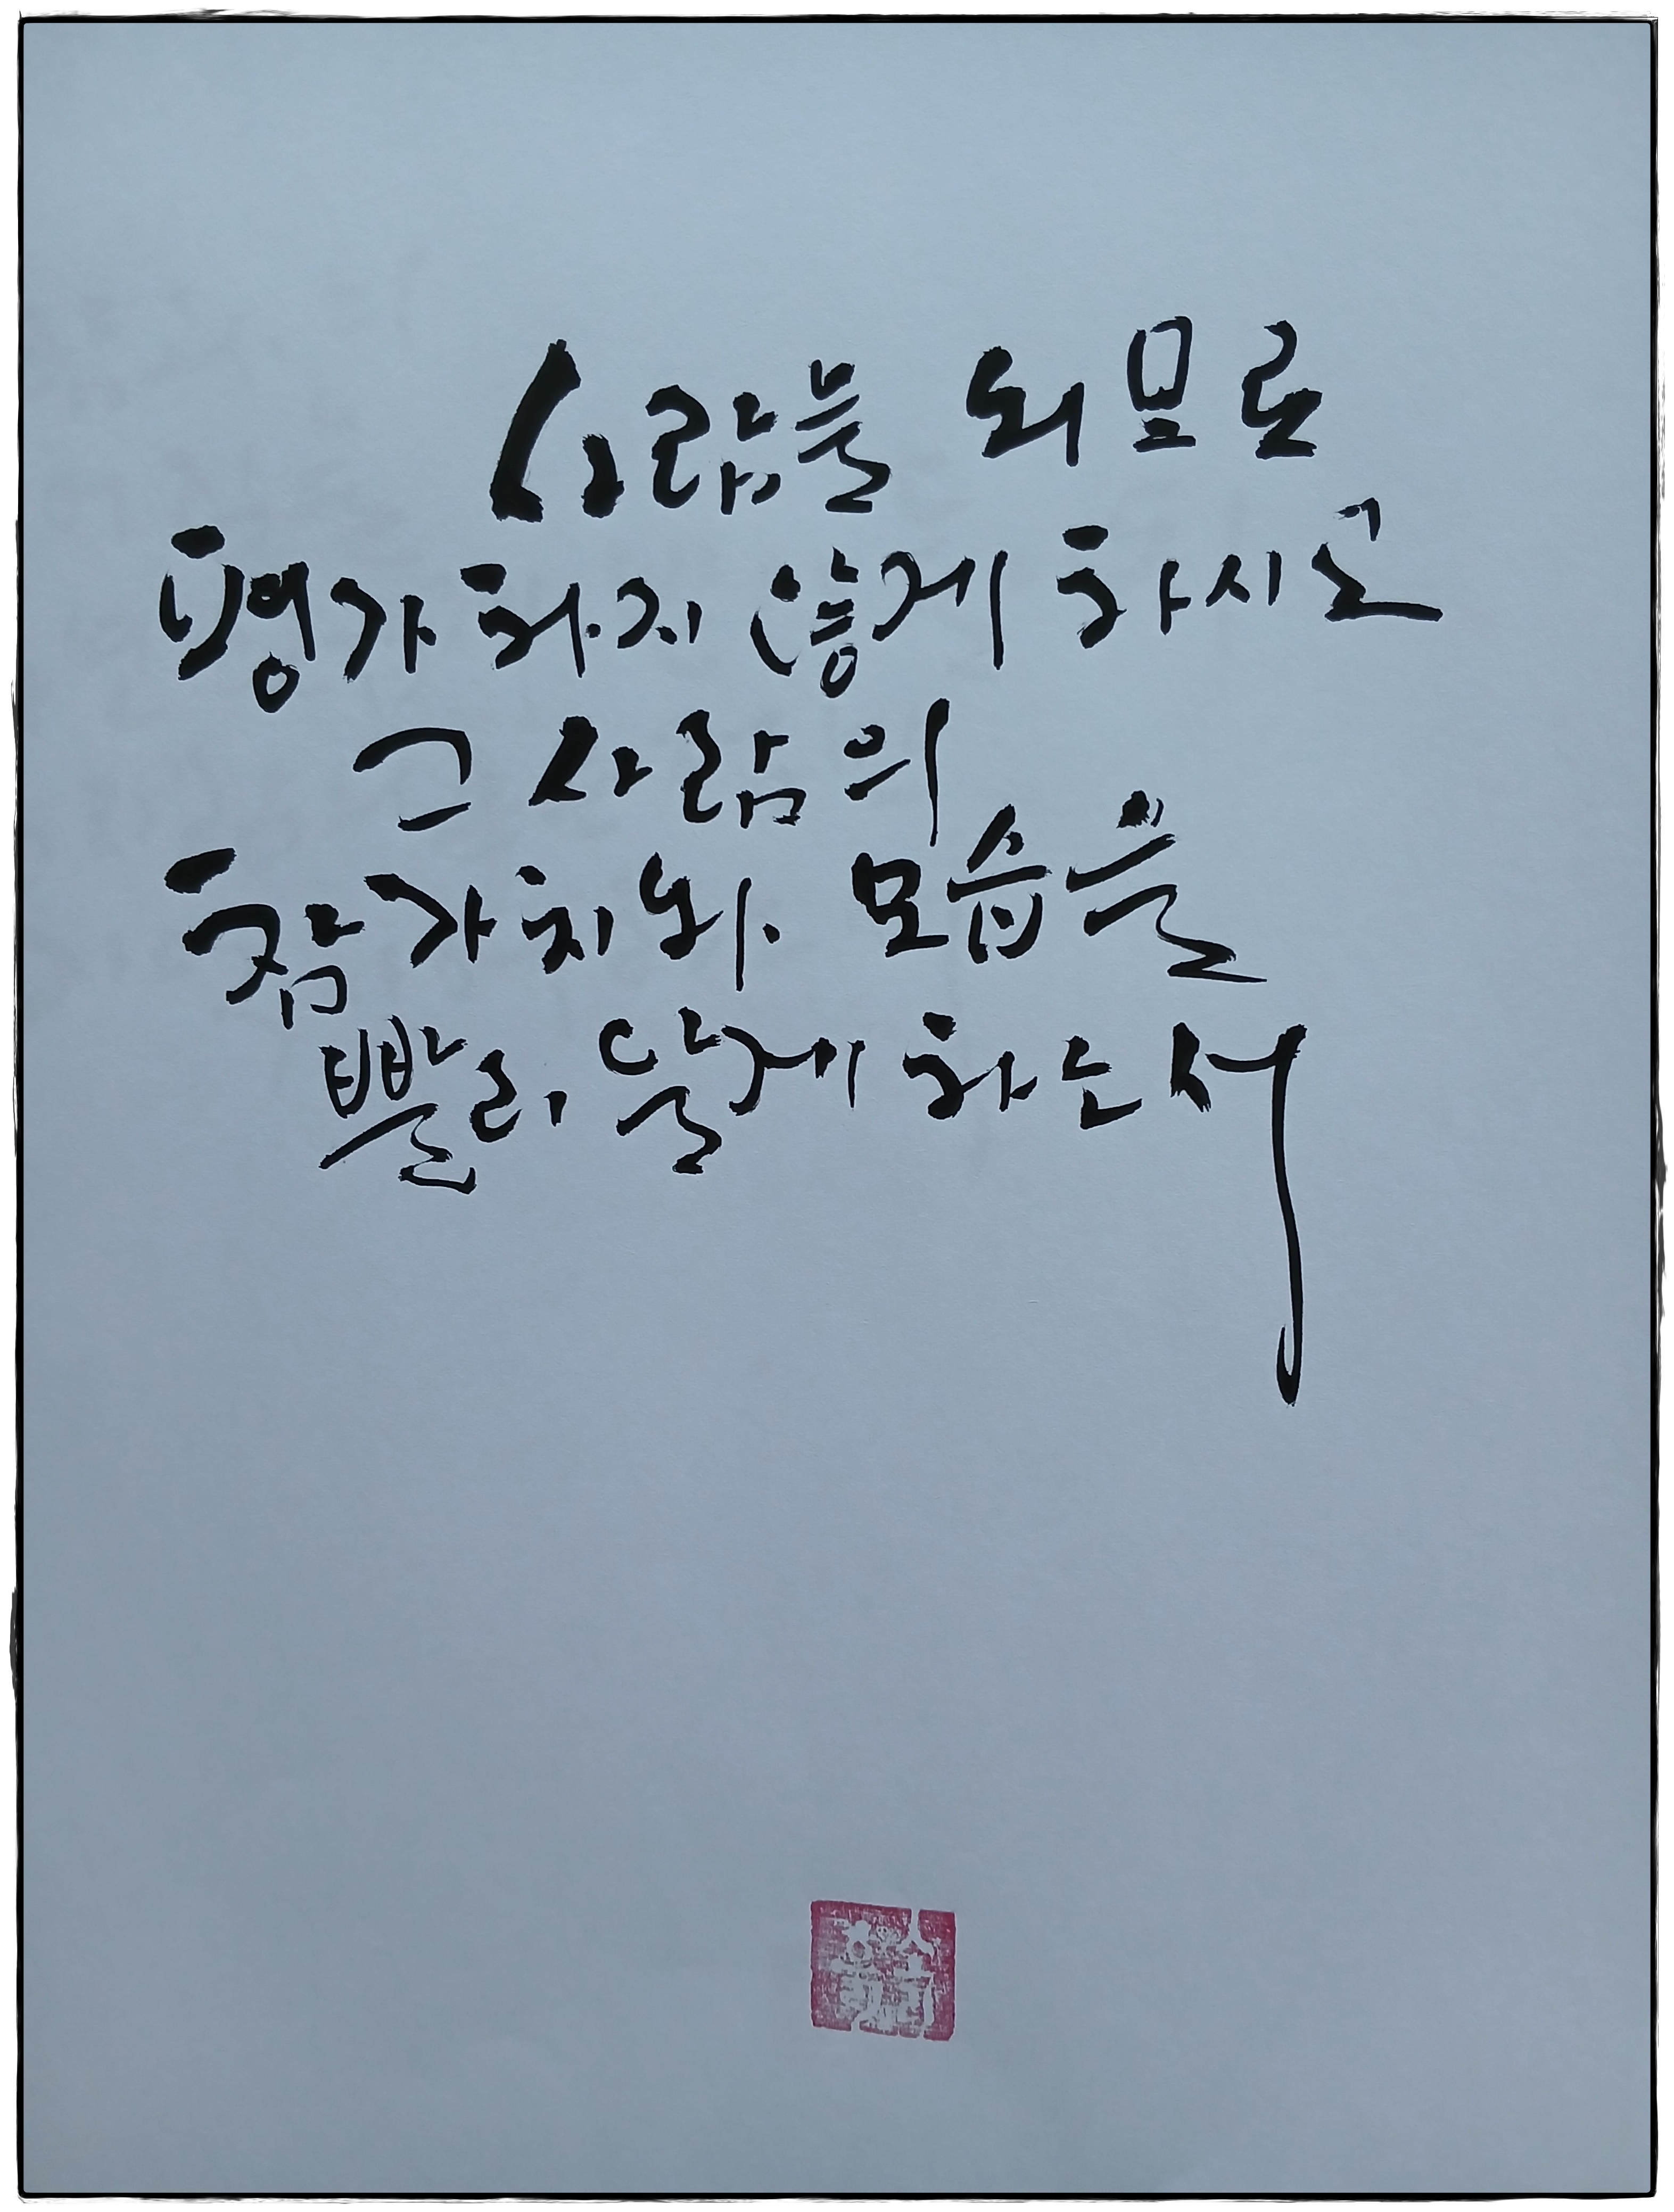 사람을 외모로
평가하지 않게 하시고
그 사람의
참 가치와 모습을
빨리 알게 하소서